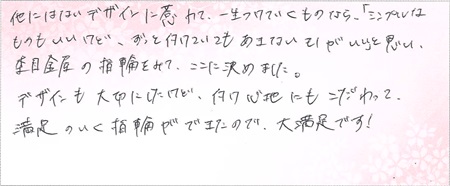 他にはないデザインに惹かれて、一生つけていくものなら、「シンプルな
ものもいいけど、ずっと付けていてもあきないものがいいなと思い、
杢目金屋の指輪をみて、ここに決めました。
デザインも大切にしたけど、付け心地にもこだわって、
満足のいく指輪ができたので、大満足です!